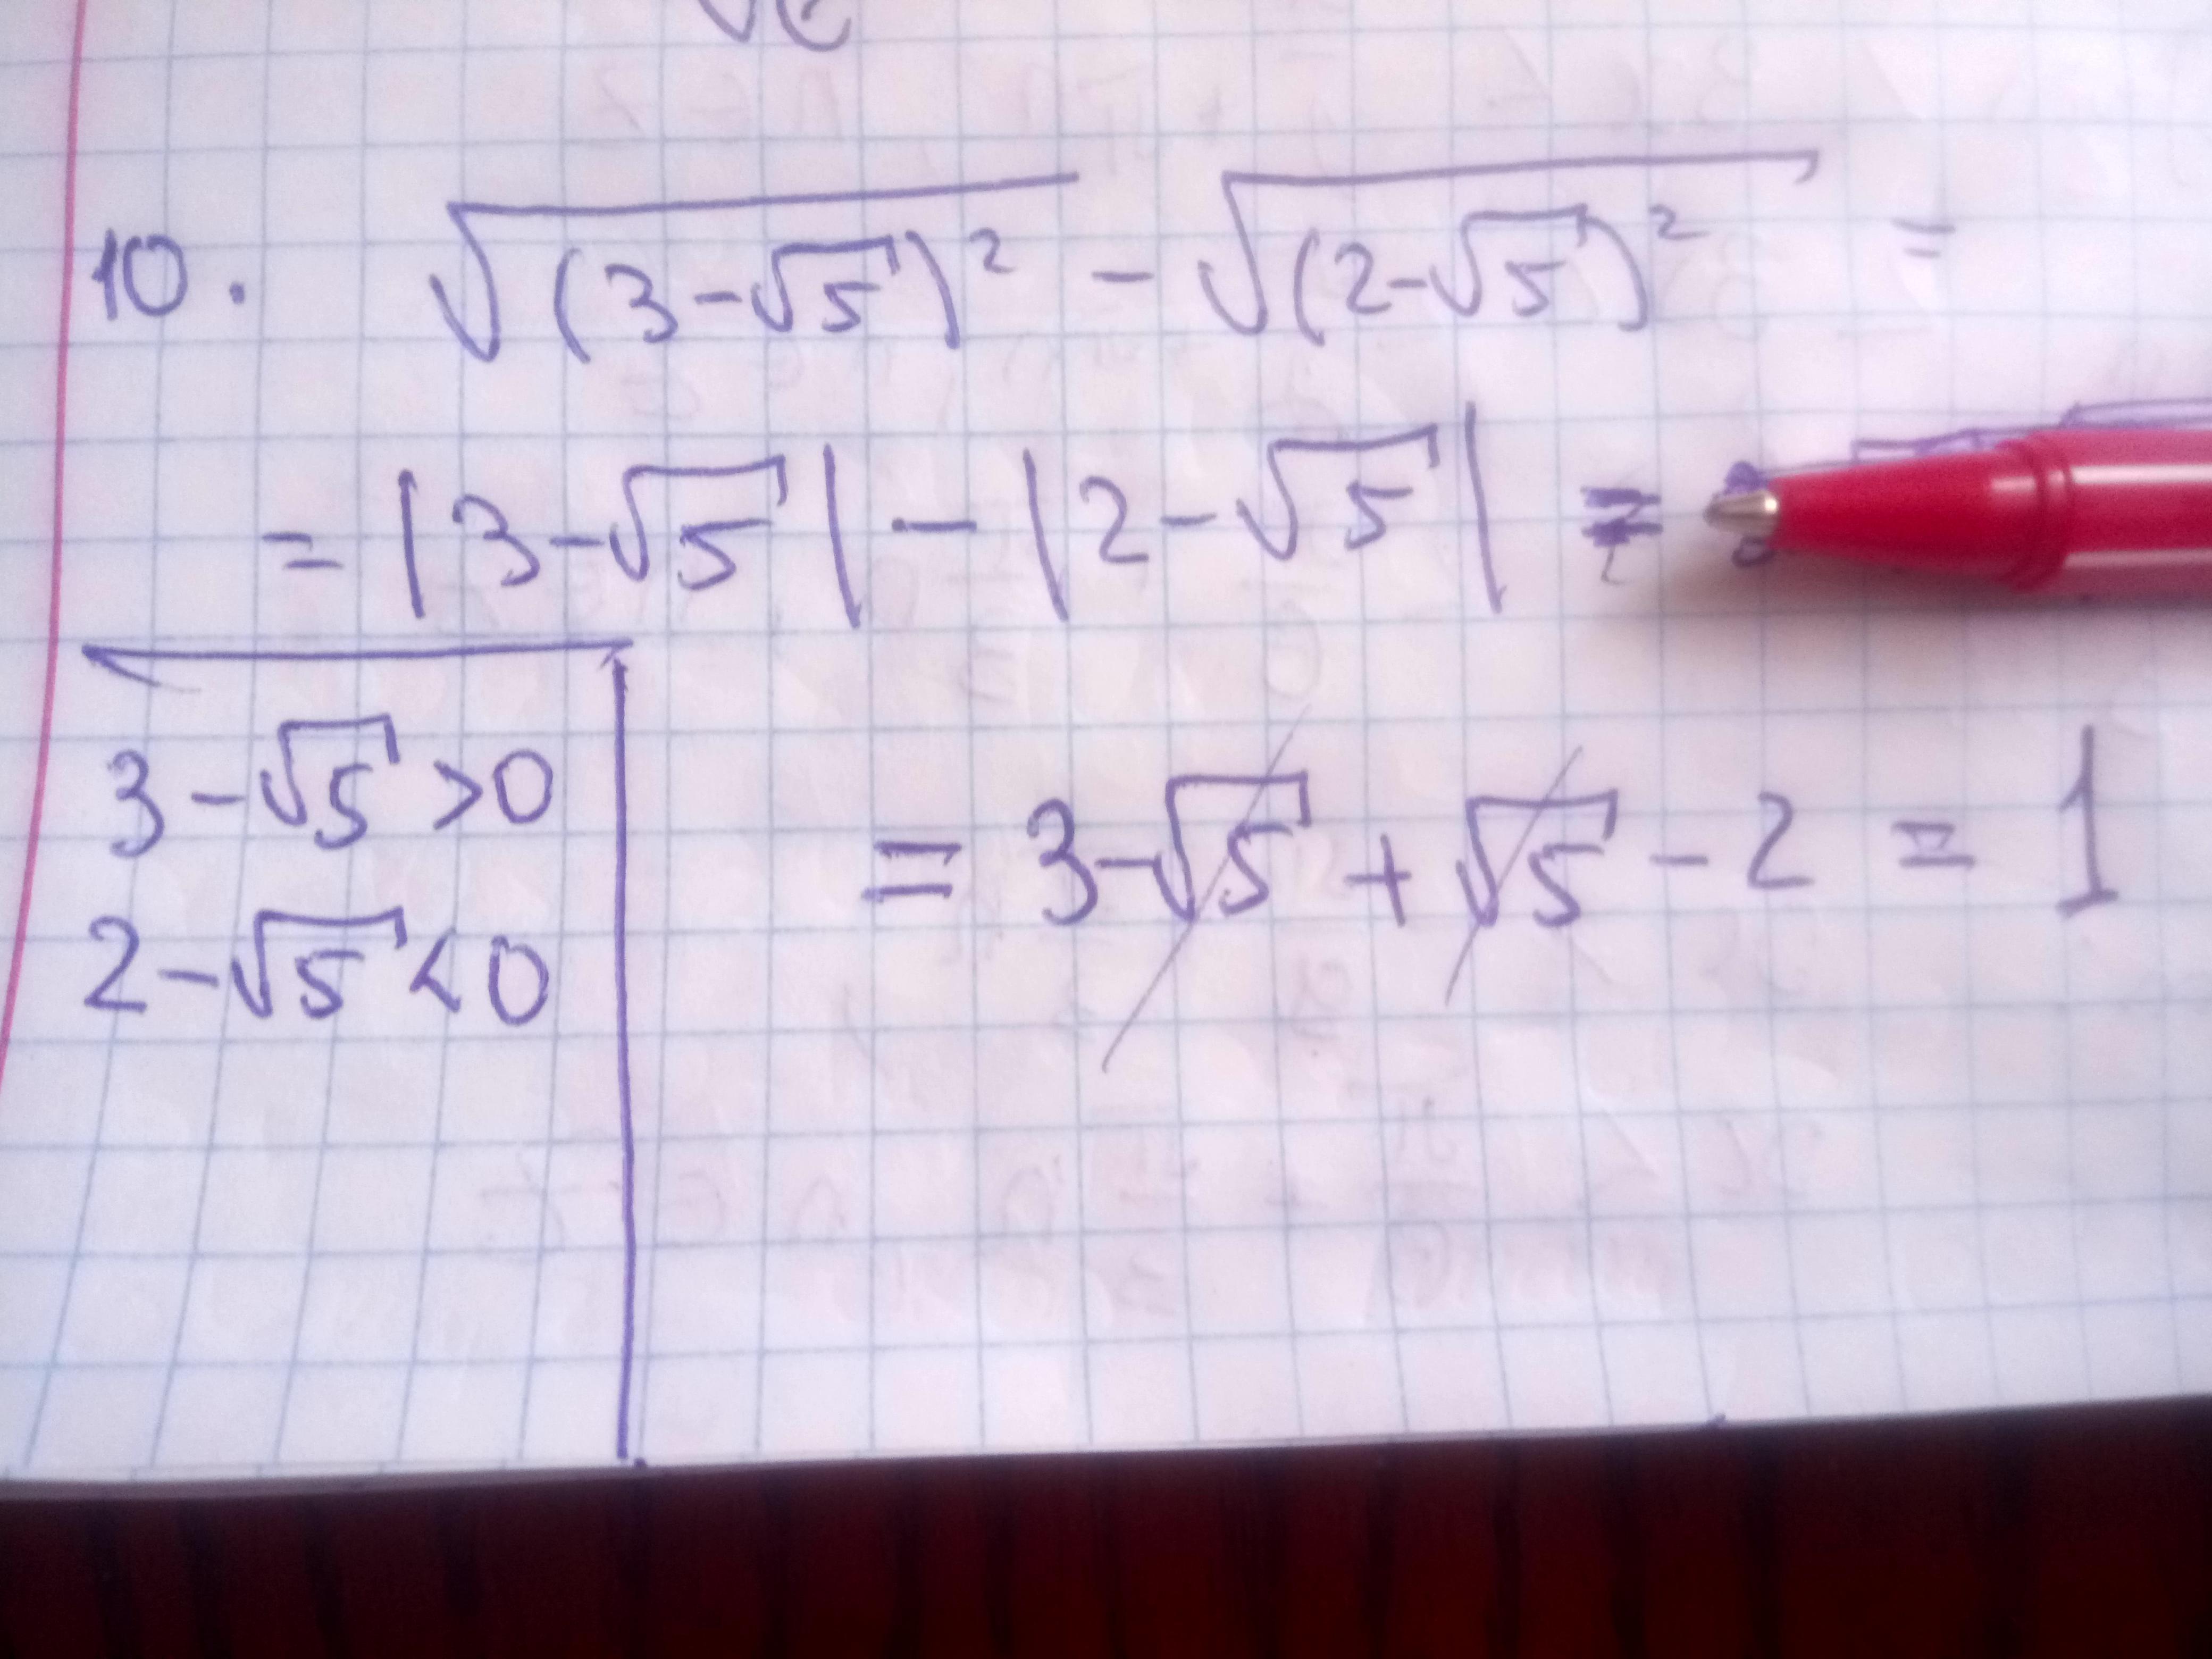 10. √(3-√5)² - √(2-√5)² =
= |3-√5| - |2-√5| =
3-√5>0
2-√5<0
= 3-√5+√5-2 = 1